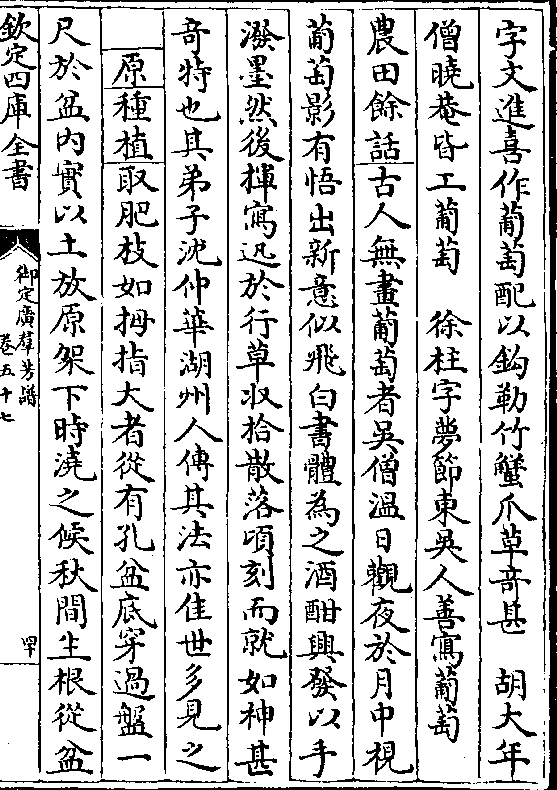 字文進喜作葡萄配以鈎勒竹蟹爪草竒甚　胡大年
僧曉菴皆工葡萄　徐柱字夢節東吳人善寫葡萄
農田餘話古人無畫葡萄者吳僧溫日觀夜於月中視
葡萄影有悟出新意似飛白書體為之酒酣興發以手
潑墨然後揮寫迅於行草収拾散落頃刻而就如神甚
竒特也其弟子沈仲華湖州人傳其法亦佳世多見之
原種植取肥枝如拇指大者從有孔盆底穿過盤一
尺於盆内實以土放原架下時澆之候秋間生根從盆
欽定四庫全書
御定廣羣芳譜
卷五十七